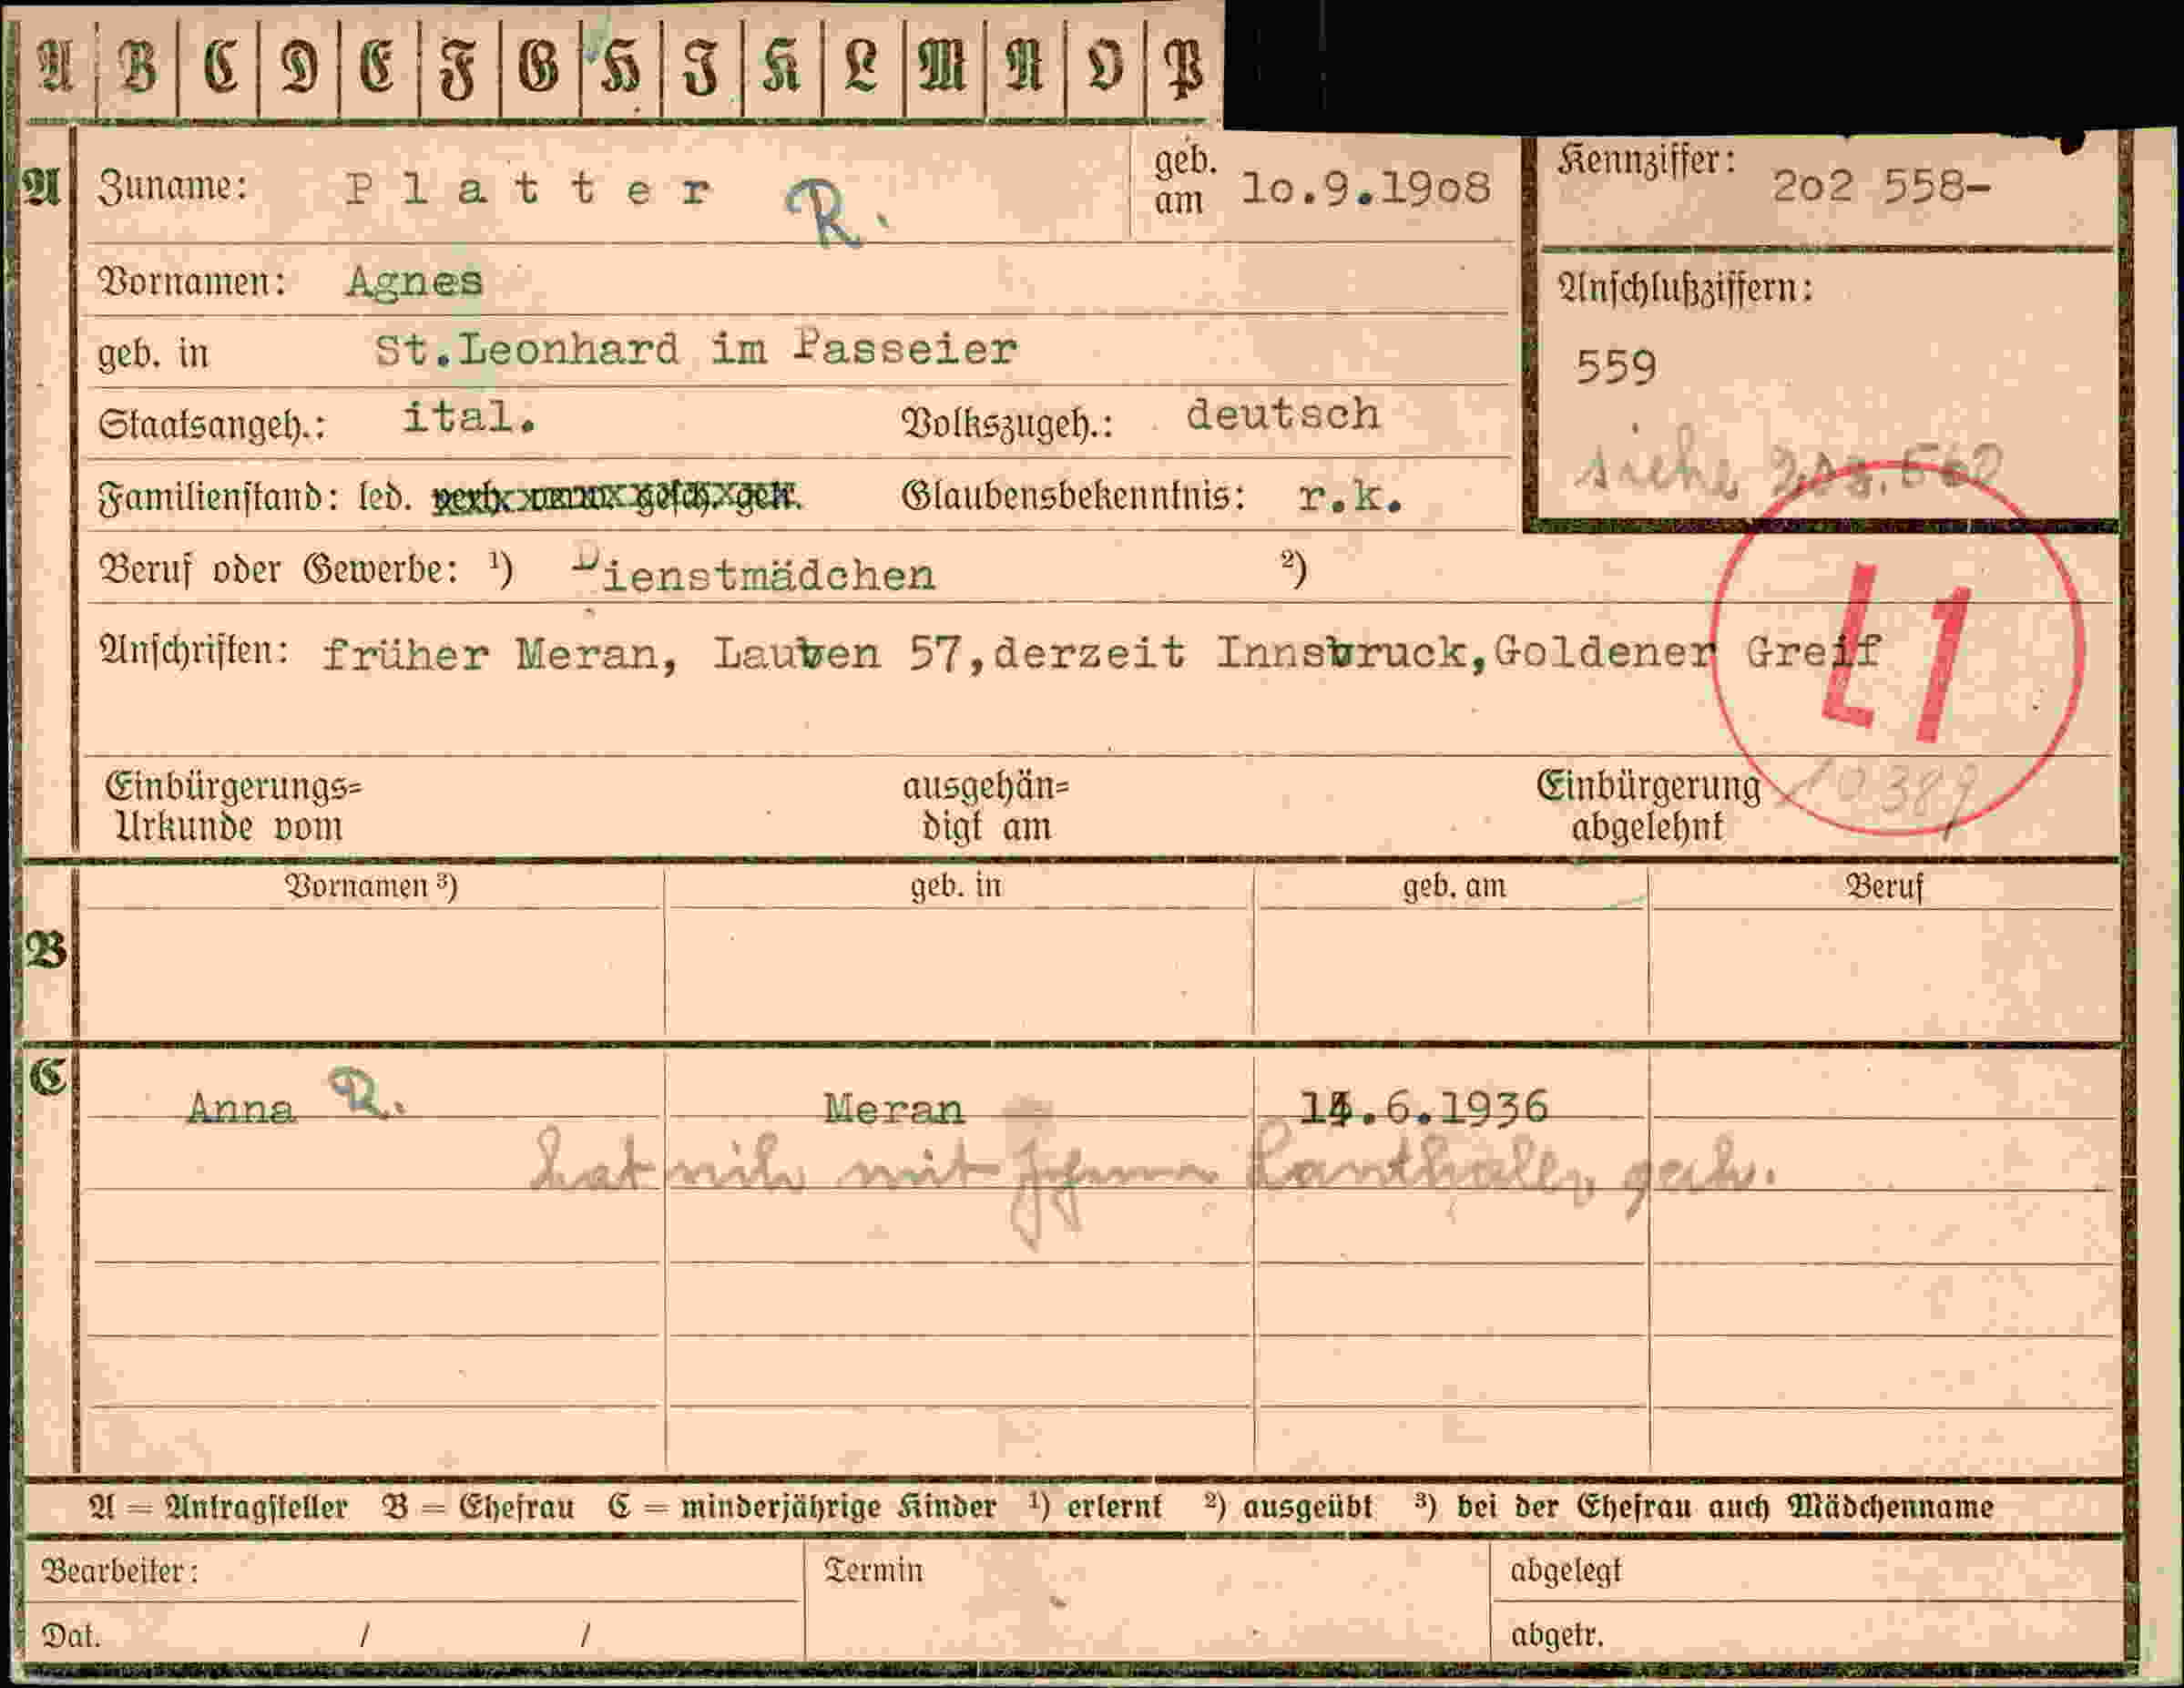 A B C D E F G H I K L M N O P
A Zuname: Platter R. geb. am 10.9.1908 Kennziffer: 202 558-
Vornamen: Agnes Anschlußziffern:
geb. in St.Leonhard im Passeier 559
Staatsangeh.: ital. Volkszugeh.: deutsch siehe
Familienstand: led. verh. verw. gesch. getr. Glaubensbekenntnis: r.k.
Beruf oder Gewerbe: ¹) Dienstmädchen ²)
L1
Anschriften: früher Meran, Lauben 57,derzeit Innsbruck,Goldener Greif
Einbürgerungs= ausgehän= Einbürgerung 10389
Urkunde vom digt am abgelehnt
Vornamen ³) geb. in geb. am Beruf
B
C Anna R. Meran .6.1936
hat sich mit Lanthaler
A = Antragsteller B = Ehefrau C = minderjährige Kinder ¹) erlernt ²) ausgeübt ³) bei der Ehefrau auch Mädchenname
Bearbeiter: Termin abgelegt
Dat. / / abgetr.